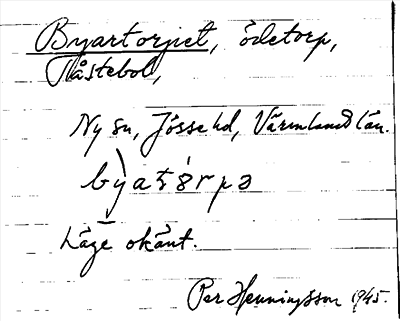 Byartorpet, ödetorp,
Tåstebol,
Ny sn, Jösse hd, Värmlands län.
Läge okänt.
Per Henningsson 1945.